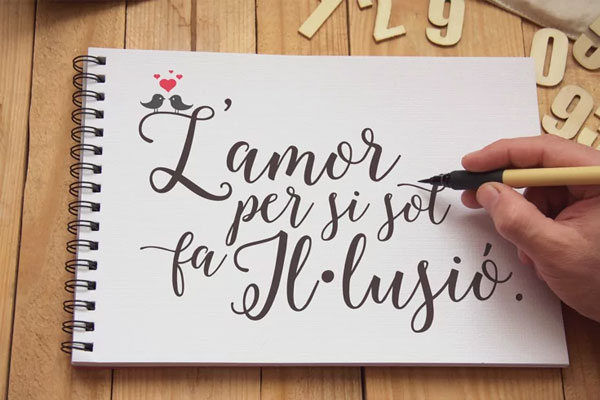 L'amor
per si sol
fa Il·lusió.
7 2 9 0
9